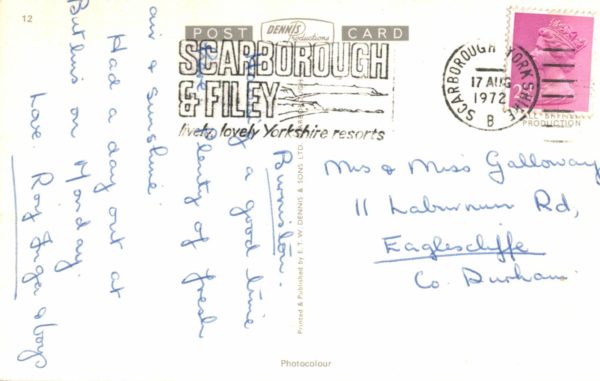 12
POST CARD
DENNIS
Productions
SCARBOROUGH
& FILEY
lively, lovely Yorkshire resorts
SCARBOROUGH YORKSHIRE
17 AUG
1972
B
PRODUCTION
Burniston.
a good time
plenty of fresh
air & sunshine.
Had a day out at
Butlins on Monday.
Love. Roy, Inger &
Mrs & Miss Galloway
11 Laburnum Rd,
Eaglescliffe
Co. Durham.
Printed & Published by E. T. W. DENNIS & SONS LTD.
Photocolour